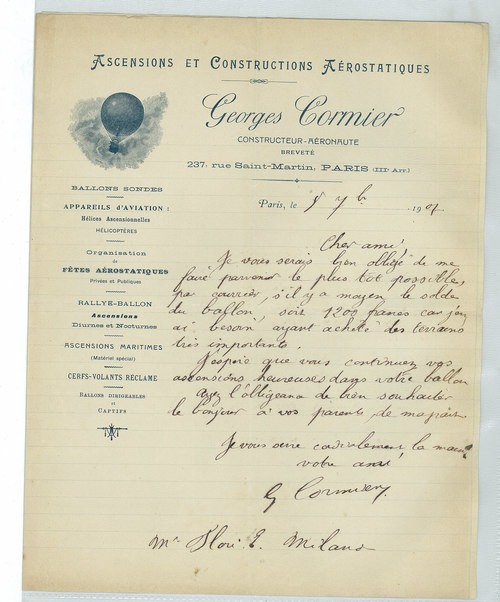 ASCENSIONS ET CONSTRUCTIONS AÉROSTATIQUES
Georges Cormier
CONSTRUCTEUR-AÉRONAUTE
BREVETÉ
237, rue Saint-Martin, PARIS (IIIe Arrt)
Paris, le 5 7b 1907
BALLONS SONDES
APPAREILS d'AVIATION :
Hélices Ascensionnelles
HÉLICOPTÈRES
Organisation
de
FÊTES AÉROSTATIQUES
Privées et Publiques
RALLYE-BALLON
Ascensions
Diurnes et Nocturnes
ASCENSIONS MARITIMES
(Matériel spécial)
CERFS-VOLANTS RÉCLAME
BALLONS DIRIGEABLES
et
CAPTIFS
Cher ami,
Je vous serais bien obligé de me
faire parvenir le plus tôt possible,
par courrier, s'il y a moyen, le solde
du ballon, soit 1200 francs car j'en
ai besoin, ayant acheté des terrains
très importants.
J'espère que vous continuez vos
ascensions heureuses dans votre ballon
ayez l'obligeance de bien souhaiter
le bonjour à vos parents de ma part
Je vous serre cordialement la main
votre ami
G Cormier
Mr E. Milano